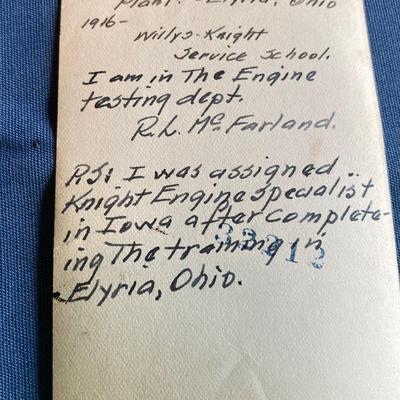 Plant. - Elyria, Ohio
1916-
Willys-Knight
Service School.
I am in The Engine
testing dept.
R.L. McFarland.
PS: I was assigned
Knight Engine Specialist
in Iowa after complete-
ing The training in
Elyria, Ohio.
33212